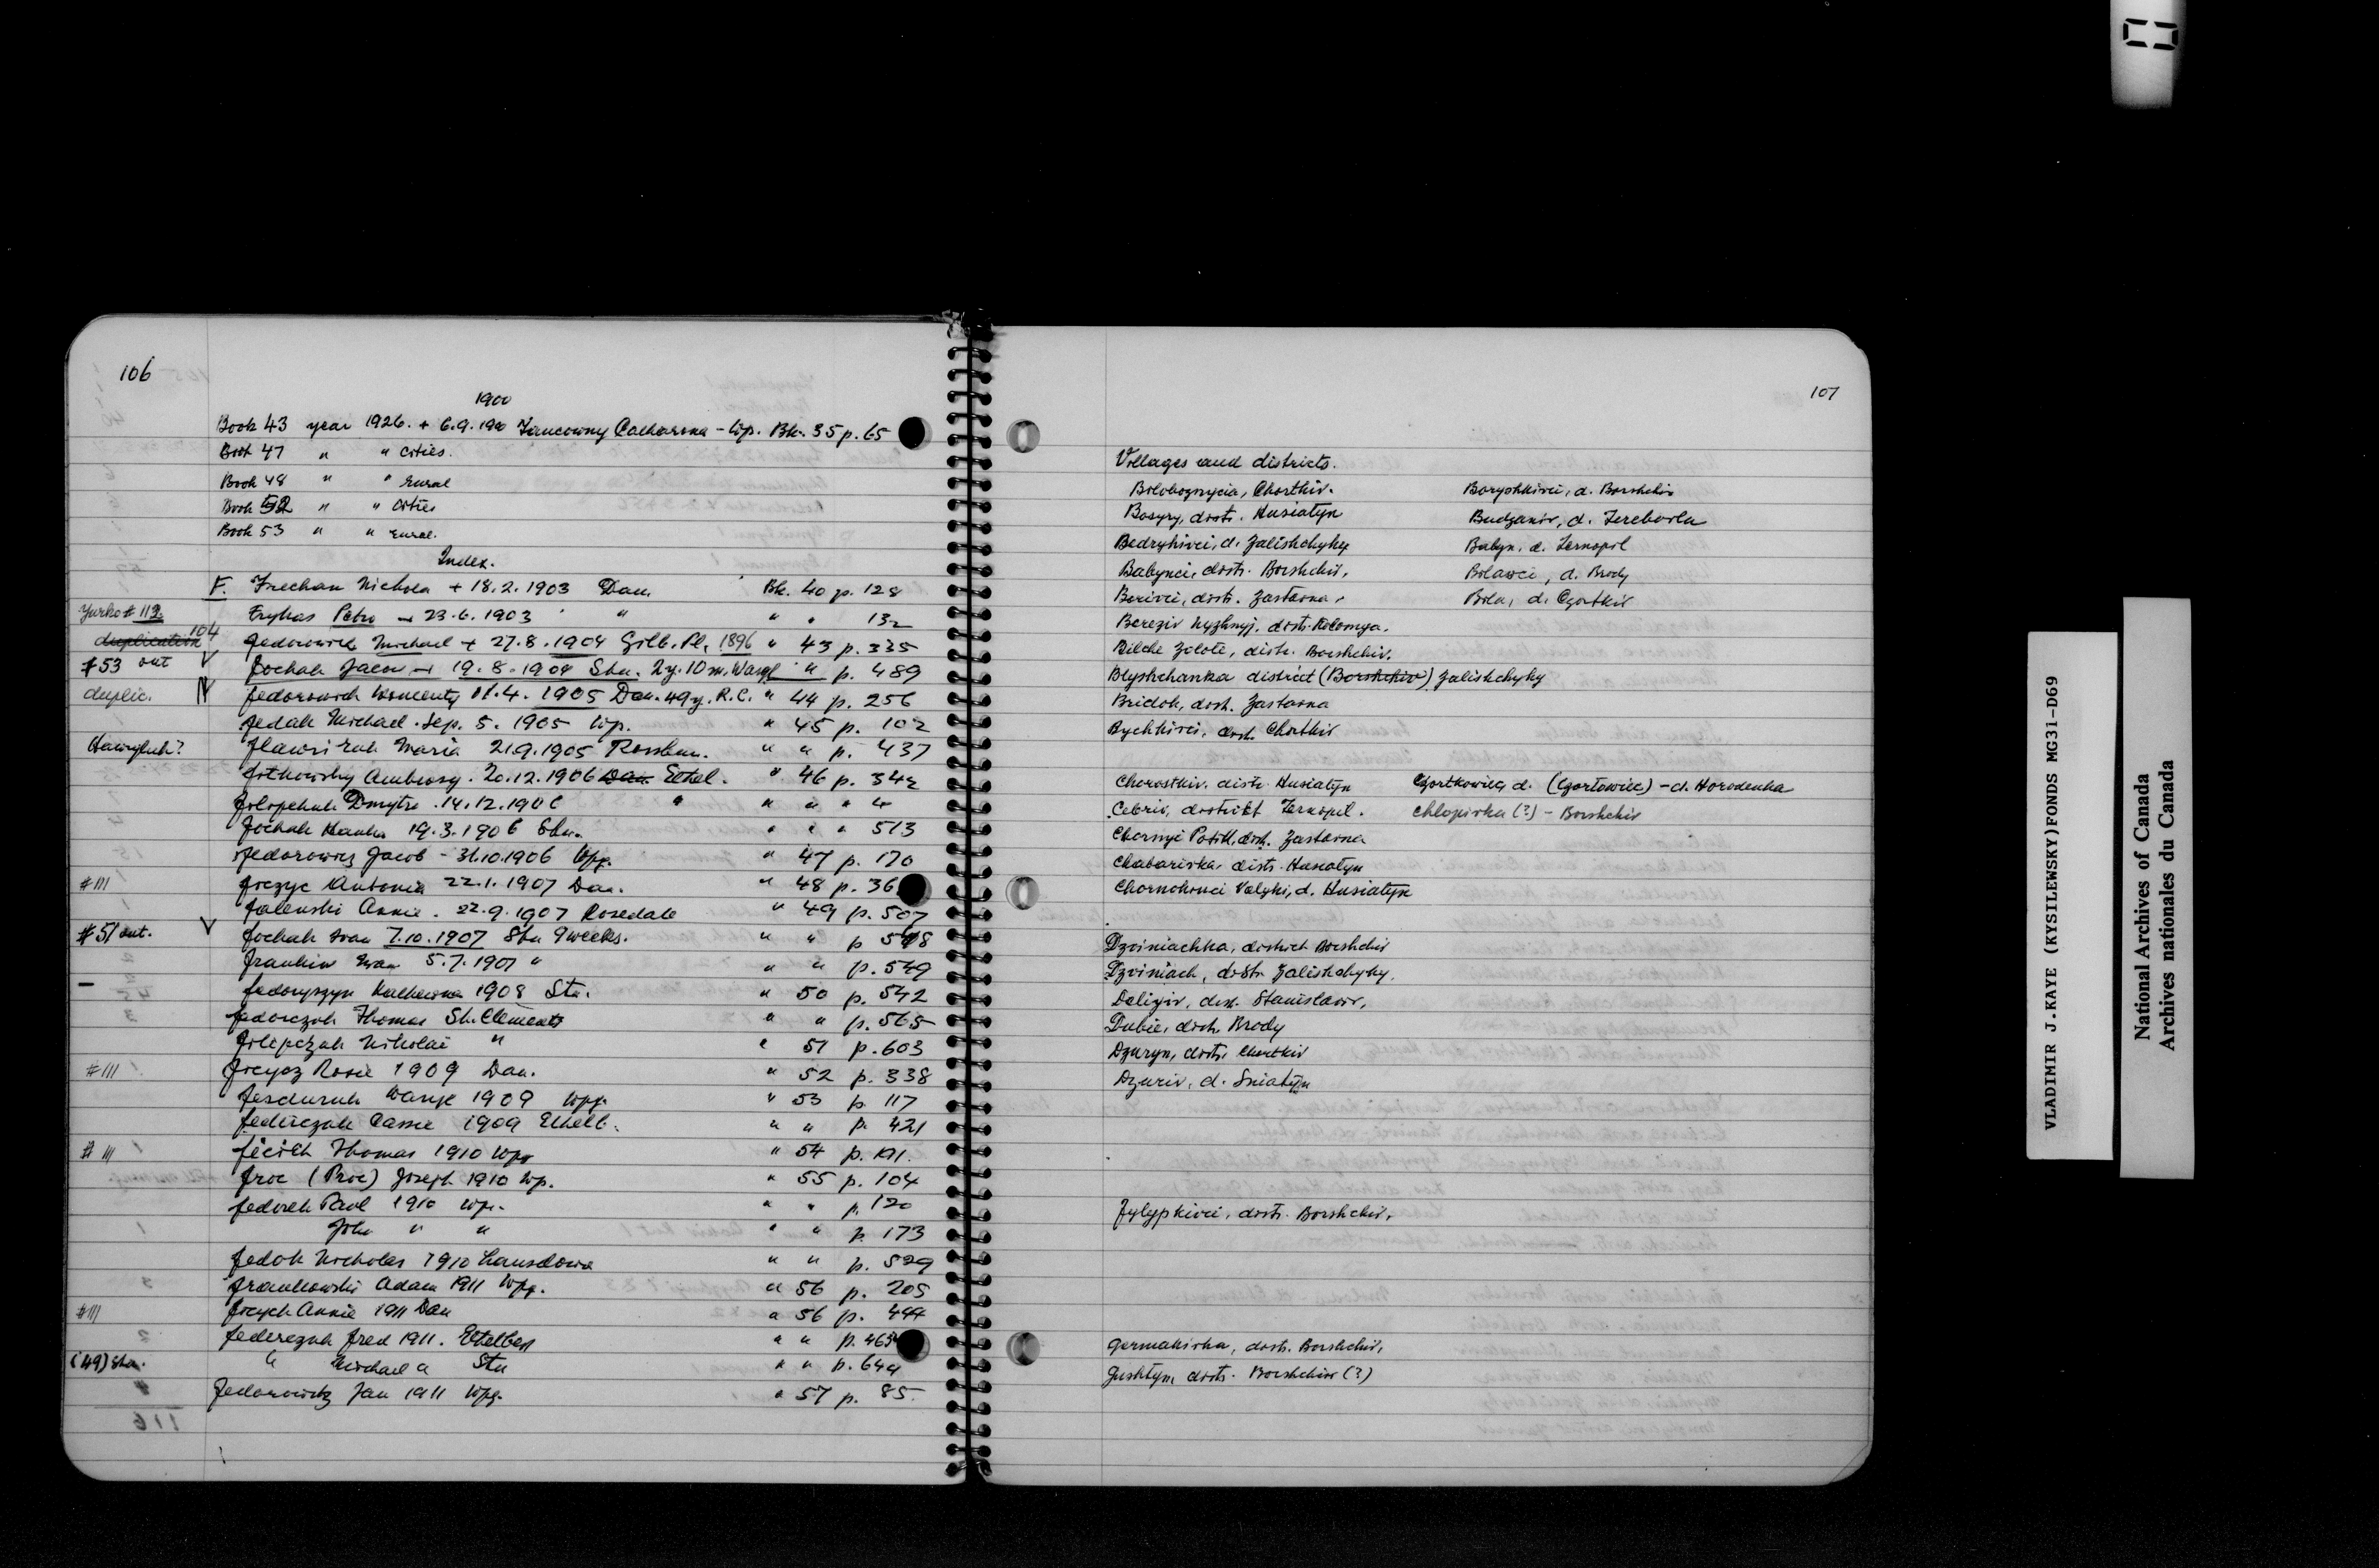 106
1900
Book 43 year 1926. + 6.9.190 Catharina - Wp. Bk. 35 p. 65
Book 47 " " cities.
Book 48 " " rural
Book 52 " " cities
Book 53 " " rural.
Index.
F. Frechan Nichola + 18.2.1903 Dau. Bk. 40 p. 128
Yurko # 112 Frykas Petro - 23.6.1903 " " " 132
duplication 104 Fedorowich Michael + 27.8.1904 Gilb. Pl. 1896 " 43 p. 335
#53 out V Fochah Jacob - 19.8.1904 Stu. 2y. 10m. Wasyl " " p. 489
duplic. Fedorowich 11.4.1905 Dau. 49y. R.C. " 44 p. 256
Fedak Michael . Sep. 5. 1905 Wp. " 45 p. 102
Hawryluk? Maria 21.9.1905 Rossburn. " " p. 437
Fitkowsky Ambrosy. 20.12.1906 Dau Ethel. " 46 p. 342
Filipchuk Dmytro. 14.12.1906 " " " " 4
Fochak Hanka 19.3.1906 Stu. " " " 513
Fedorowicz Jacob - 31.10.1906 Wpg. " 47 p. 170
#111 Antonia 22.1.1907 Dau. " 48 p. 36
Falenski Annie. 22.9.1907 Rosedale " 49 p. 507
#51 out. V Fochak Ivan 7.10.1907 Stu 9 weeks. " " p
Frankiw Ivan 5.7.1907 " " " p. 549
- Fedoryszyn Katherina 1908 Stu. " 50 p. 542
Fedorczuk Thomas St. Clements " " p. 565
Filipczuk Nikolai " " 51 p. 603
#111 Ficycz Rosie 1909 Dau. " 52 p. 338
Wasyl 1909 Wpg. " 53 p. 117
Federczuk Cassie 1909 Ethelb. " " p. 421
#111 Thomas 1910 Wpg " 54 p. 191.
Froc (Proc) Joseph 1910 Wp. " 55 p. 104
Fedoreh Paul 1910 Wp. " " p. 120
John " " " " p. 173
Fedak Nicholas 1910 Lansdowne " " p. 529
Frankowski Adam 1911 Wpg. " 56 p. 205
#111 Ficych Annie 1911 Dau " 56 p. 494
Federczuk Fred 1911. Ethelbert " " p. 463
(49) Stu. " Michael " Stu " " p. 644
Fedorowicz Jan 1911 Wpg. " 57 p. 85
107
Villages and districts.
Biloboznycia, Chortkiv. Boryshkivci, d. Borshchiv
Bosyry, distr. Husiatyn Budzaniv, d. Terebovla
Bedrykivci, d. Zalishchyky Babyn, d. Ternopil
Babynci, distr. Borshchiv. Bilavci, d. Brody
Borivci, distr. Zastavna. Bila, d. Czortkiv
Bereziv Nyzhnyj. distr. Kolomya.
Bilche Zolote, distr. Borshchiv.
Blyshchanka district (Borshchiv) Zalishchyky
Bridok, distr. Zastavna
Bychkivci, distr. Chortkiv
Chorostkiv. distr. Husiatyn Czortkowiec, d. (Czortowiec) - d. Horodenka
Cebriv, distrikt Ternopil. Chlopivka (?) - Borshchiv
Chornyi Potik, distr. Zastavna
Chabarivka, distr. Husiatyn
Chornokinci Velyki, d. Husiatyn
Dzviniachka, district Borshchiv
Dzviniach, distr. Zalishchyky.
Deliyiv, distr. Stanislaviv,
Dubie, distr. Brody
Dzuryn, distr. Chortkiv
Dzuriv, d. Sniatyn
Fylypkivci, distr. Borshchiv,
Germakivka, distr. Borshchiv,
Gushtyn, distr. Borshchiv (?)
VLADIMIR J. KAYE (KYSILEWSKY) FONDS MG31-D69
National Archives of Canada
Archives nationales du Canada